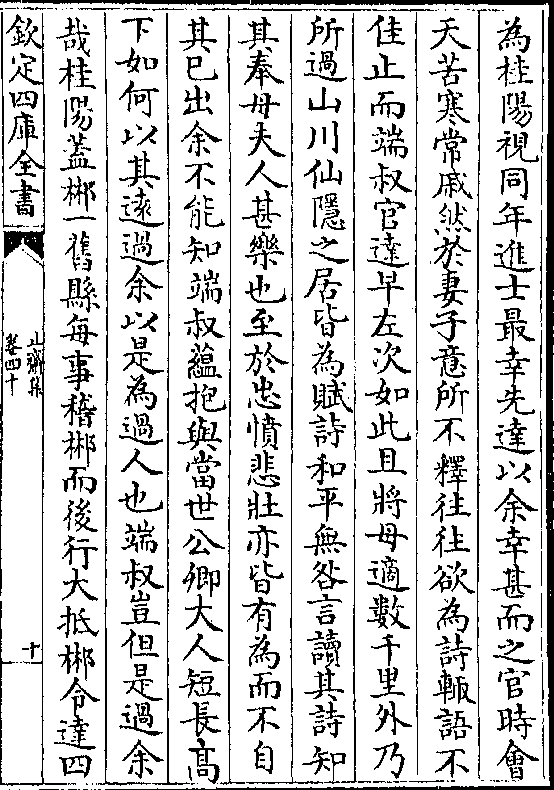 為桂陽視同年進士最幸先達以余幸甚而之官時會
天苦寒常戚然於妻子意所不釋往往欲為詩輙語不
佳止而端叔官達早左次如此且將母適數千里外乃
所過山川仙隱之居皆為賦詩和平無咎言讀其詩知
其奉母夫人甚樂也至於忠憤悲壯亦皆有為而不自
其已出余不能知端叔蘊抱與當世公卿大人短長高
下如何以其逺過余以是為過人也端叔豈但是過余
哉桂陽蓋郴一舊縣每事稽郴而後行大抵郴令達四
欽定四庫全書
止齋集
卷四十
十